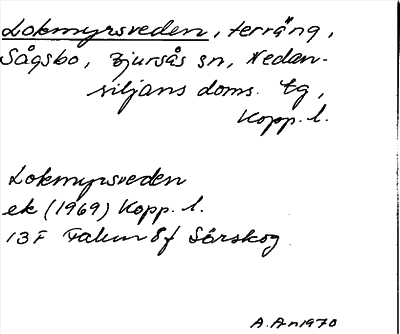 Lokmyrsveden, terräng,
Sågsbo, Bjursås sn, Nedan-
siljans doms. tg,
Kopp. l.
Lokmyrsveden
ek (1969) Kopp. l.
13F Falun 8f Sörskog
A.An 1970